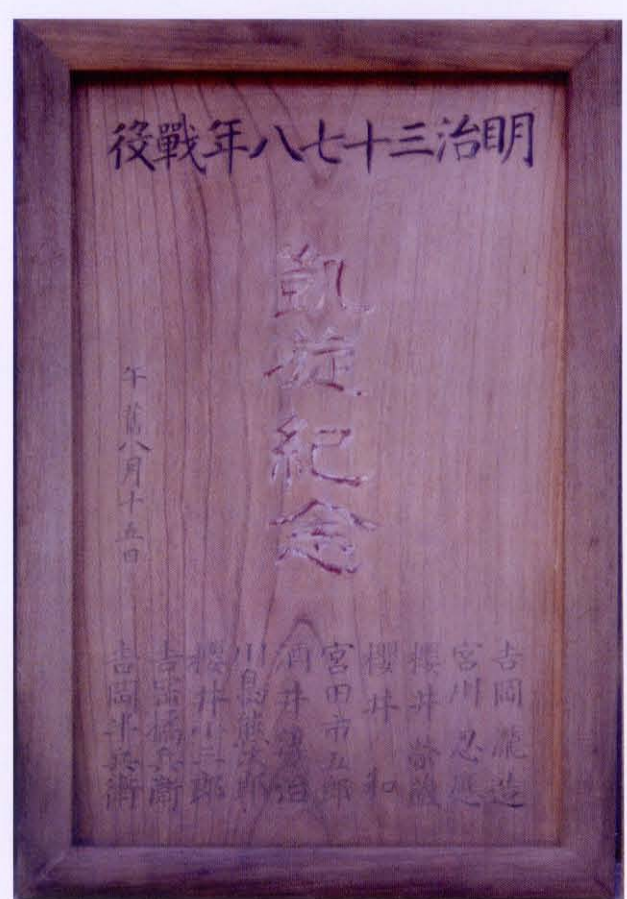 明治三十七八年戰役
凱旋紀念
午舊八月十五日
吉岡瀧造
宮川忍
櫻井榮
櫻井和
宮田市五郎
酒井治
川島熊次郎
櫻井小三郎
吉岡兵衛
吉岡半兵衛